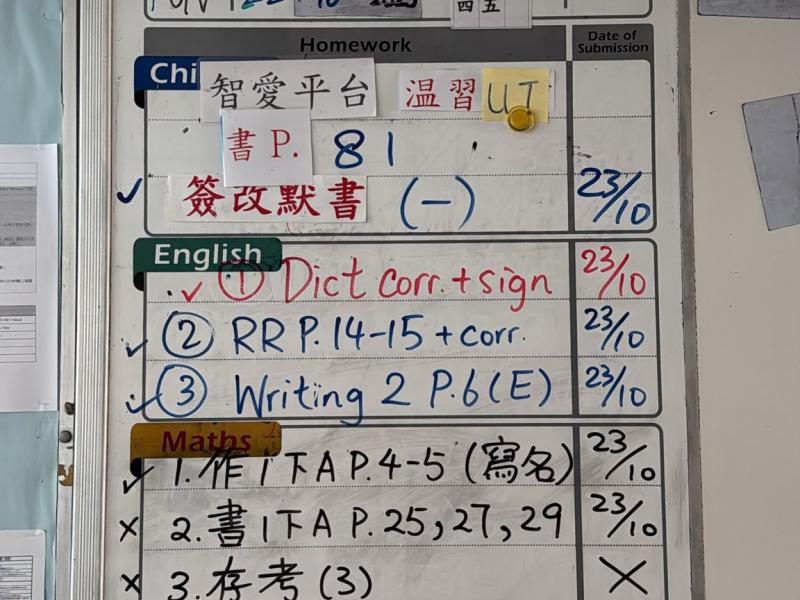 四 五
Homework Date of Submission
Chi
智愛平台 温習 UT
書 P. 81
✓ 簽改默書 (一) 23/10
English
✓ ① Dict corr. + sign 23/10
✓ ② RR P. 14-15 + corr. 23/10
✓ ③ Writing 2 P.6 (E) 23/10
Maths
✓ 1. 作1下A P.4-5 (寫名) 23/10
× 2. 書1下A P. 25, 27, 29 23/10
× 3. 存考 (3) ×